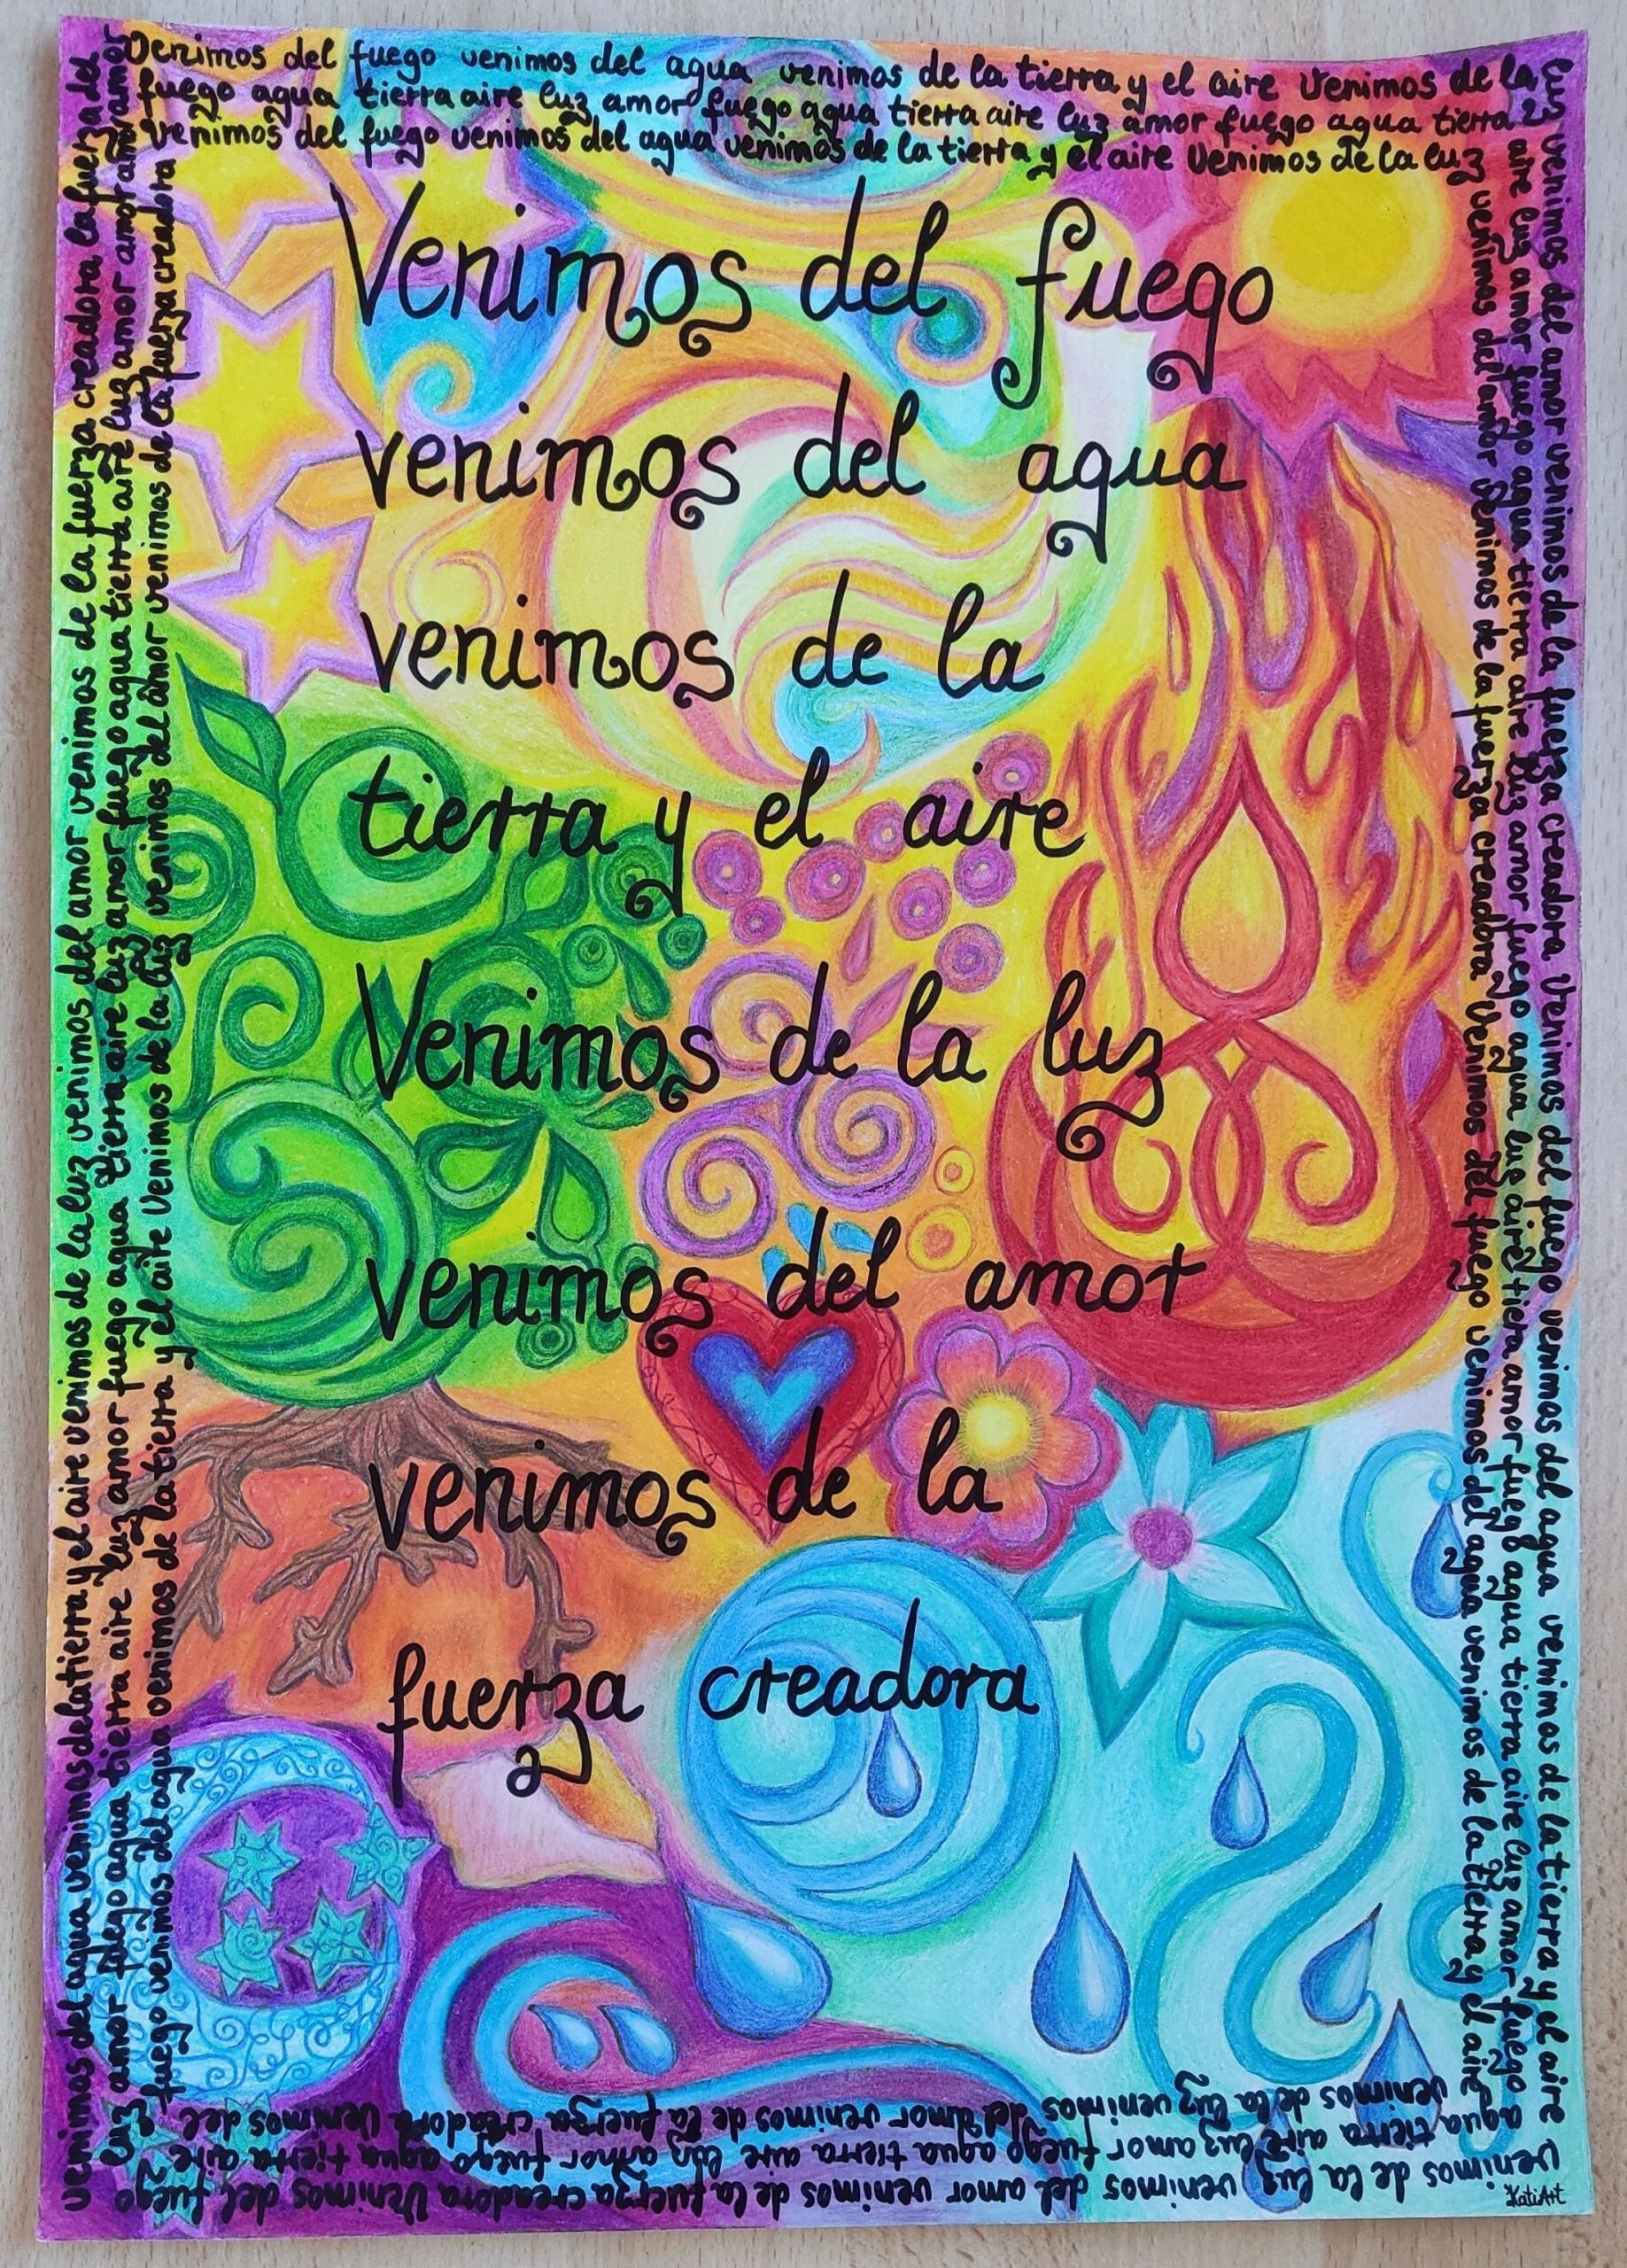 Venimos del fuego venimos del agua venimos de la tierra y el aire Venimos de la
fuego agua tierra aire luz amor fuego agua tierra aire luz amor fuego agua tierra
venimos del fuego venimos del agua venimos de la tierra y el aire Venimos de la luz
Venimos del fuego
venimos del agua
venimos de la
tierra y el aire
Venimos de la luz
venimos del amor
venimos de la
fuerza creadora
luz venimos del amor venimos de la fuerza creadora Venimos del fuego venimos del agua venimos de la tierra y el aire
aire luz amor fuego agua tierra aire luz amor fuego agua luz aire tierra amor fuego agua tierra aire luz amor fuego
venimos del amor venimos de la fuerza creadora Venimos del fuego venimos del agua venimos de la tierra y el aire
venimos de la luz venimos del amor venimos de la fuerza creadora Venimos del fuego
agua tierra aire luz amor fuego agua tierra aire luz amor fuego agua tierra aire
venimos de la luz venimos del amor venimos de la fuerza creadora Venimos del
venimos del agua venimos de la tierra y el aire venimos de la luz venimos del amor venimos de la fuerza creadora la fuerza del
luz amor fuego agua tierra aire luz amor fuego agua tierra aire luz amor fuego agua tierra aire luz amor amor amor amor
fuego venimos del agua venimos de la tierra y el aire Venimos de la luz venimos del amor venimos de la fuerza creadora
KatiArt